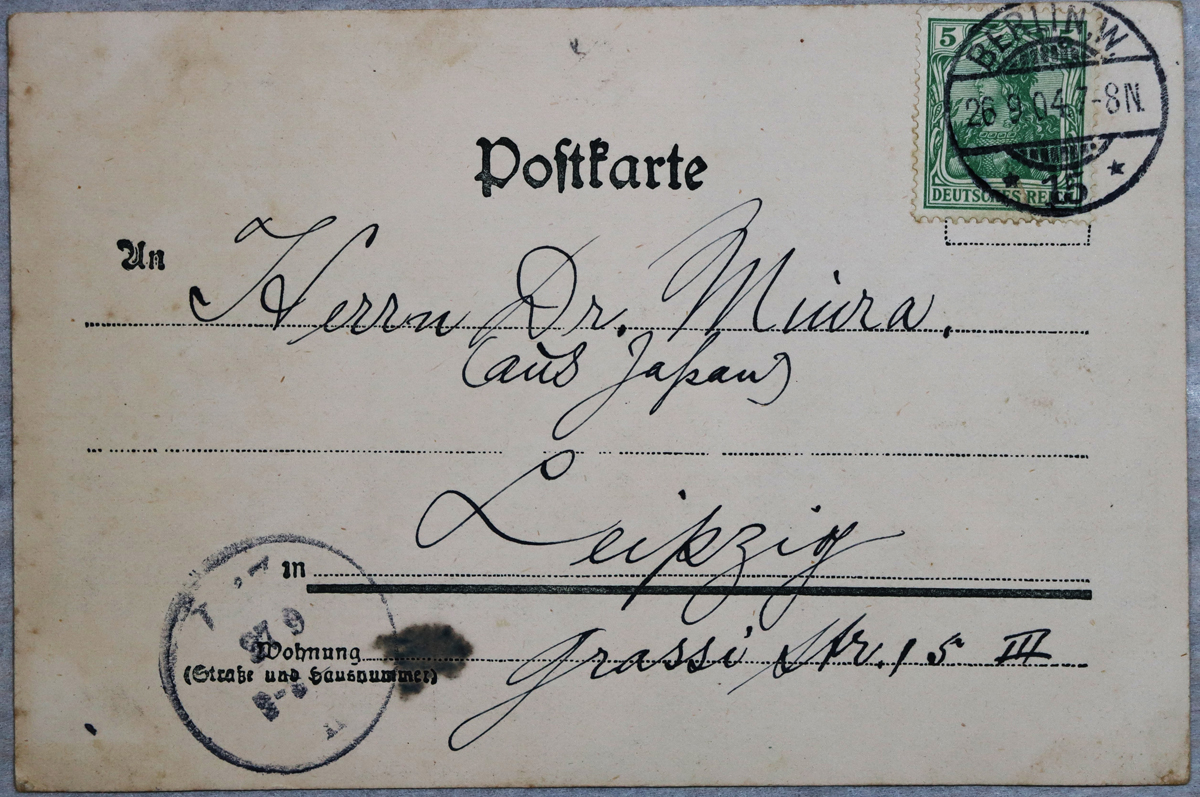 BERLIN.W.
5
26 9 04 7-8N.
* 15 *
DEUTSCHES REICH
Postkarte
An
Herrn Dr. Miura.
(aus Japan)
Leipzig
in
27 9
Wohnung
(Straße und Hausnummer)
Grassi Str. 15 III